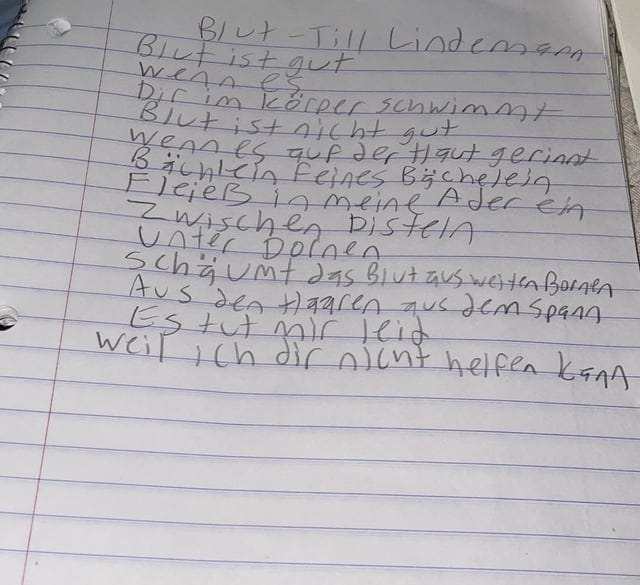 Blut - Till Lindemann
Blut ist gut
wenn es
Dir im körper schwimmt
Blut ist nicht gut
wenn es auf der Haut gerinnt
Bächlein feines Bächelein
Fleieß in meine Ader ein
Zwischen Disteln
unter Dornen
Schäumt das Blut aus weiten Bornen
Aus den Haaren aus dem spann
Es tut mir leid
weil ich dir nicht helfen kann